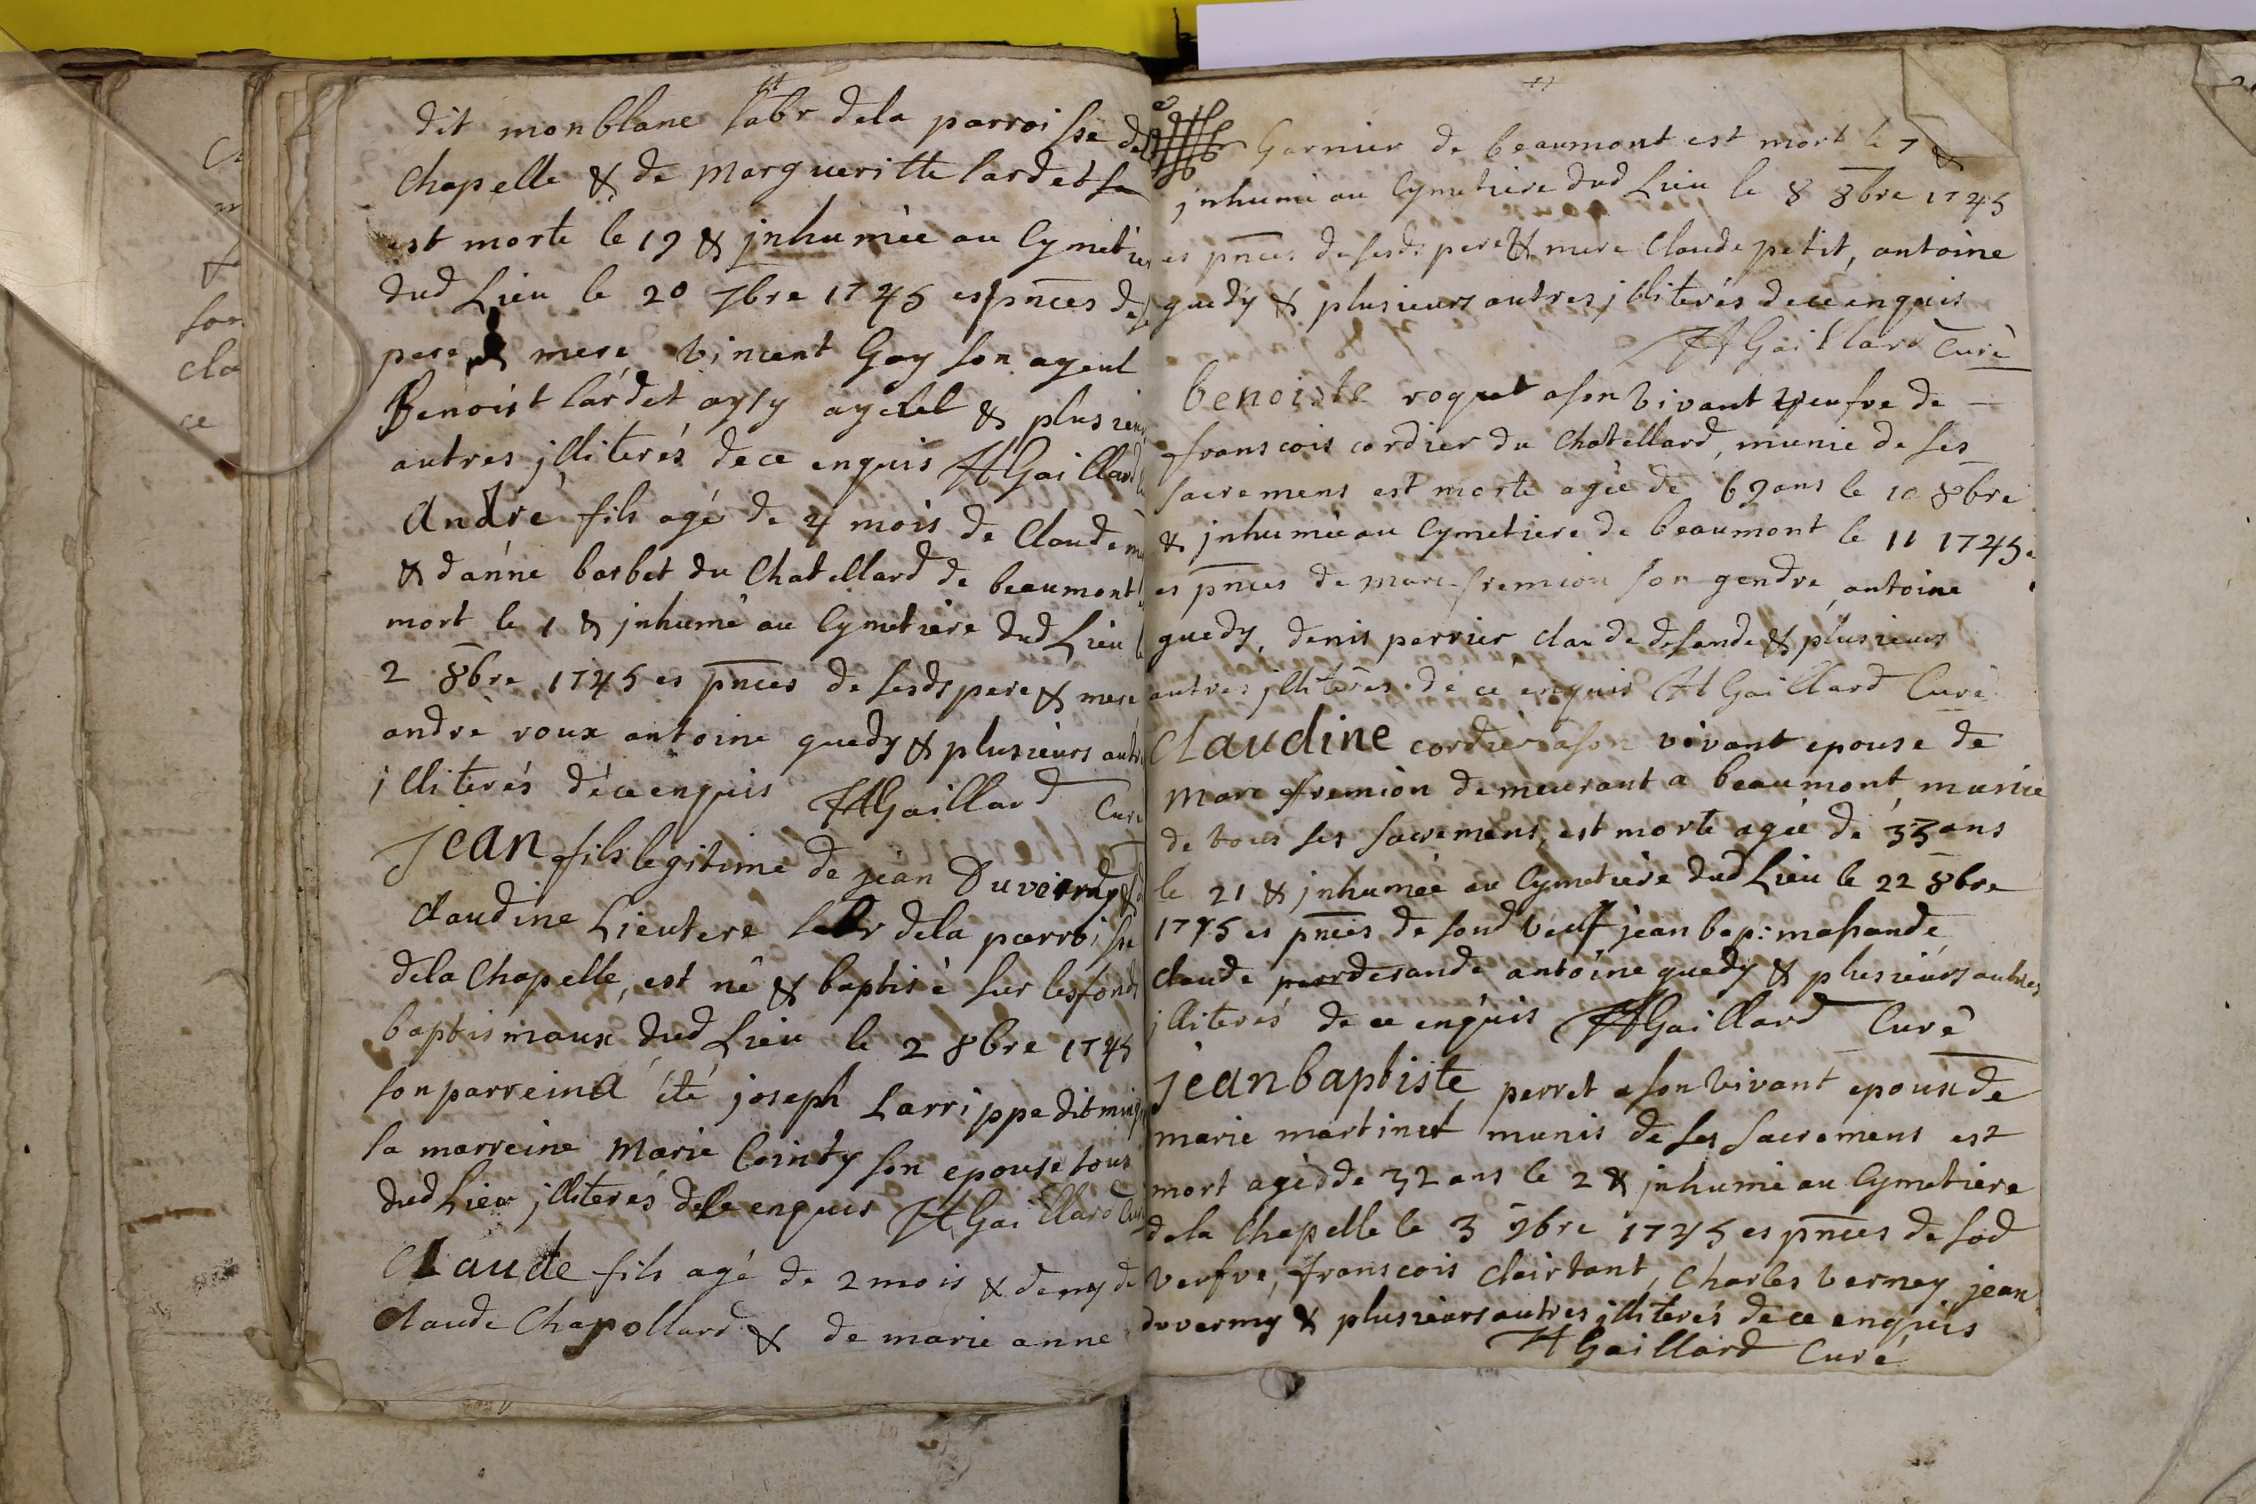 dit monblanc labr dela parroisse de
Chapelle & de Margueritte lardet sa
est morte le 19 & jnhumèe au Cymetie
dud Lieu le 20 7bre 1745 es pnces de
pere & mere vincent Gay son ayeul
Benoist lardet ayeul & plusieurs
autres jlliterés dece enquis HGaillard
André fils agé de 4 mois de Claude
& d'anne barbet du Chatellard de beaumont
mort le 1 & jnhumé au Cymetiere dud Lieu
2 8bre 1745 es pnces de sesds pere & mere
andrè roux antoine guedy & plusieurs autr
jlliterés dece enquis HGaillard Curé
Jean fils legitime de jèan Duverny &
claudine Lieutere labr dela parroisse
dela Chapelle, est né & baptisé sur les fonds
baptismaux dud Lieu le 2 8bre 1745
son parrein a été joseph Larrippe dit
sa marreine Marie Cointy son epouse tous
dud Lieu jlliterés dece enquis HGaillard Cur
Claude fils agé de 2 mois & demy de
claude Chapollard & de marie anne
Garnier de beaumont est mort le 7 &
jnhumé au Cymetiere dud Lieu le 8 8bre 1745
es pnces de sesds pere & mere Claude petit, antoine
guedy & plusieurs autres jlliterés dece enquis
HGaillard Curé
benoiste roquet a son vivant veufve de
franscois cordier du Chatellard, munie de ses
sacremens est morte agèe de 69 ans le 10 8bre
& jnhumèe au Cymetiere de beaumont le 11 1745
es pnces de marc fremion son gendre, antoine
guedy, denis perrier claude desande & plusieurs
autres jlliterés de ce enquis HGaillard Curé
Claudine cordier a son vivant epouse de
Marc fremion demeurant a beaumont, munie
de tous ses sacremens, est morte agèe de 33 ans
le 21 & jnhumèe au Cymetiere dud Lieu le 22 8bre
1745 es pnces de sond veuf jean bap: masande
claude desande antoine guedy & plusieurs autres
jlliterés de ce enquis HGaillard Curé
jean baptiste perret a son vivant epoux de
marie martinet munis de ses sacremens est
mort agé de 32 ans le 2 & jnhumé au Cymetiere
dela Chapelle le 3 9bre 1745 es pnces de sad
veufve, franscois clairtant, Charles verney jean
duverny & plusieurs autres jlliterés de ce enquis
HGaillard Curé